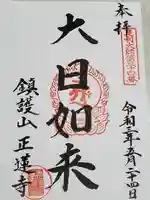 奉拝
令和三年五月二十四日
大日如来
鎮護山 正蓮寺